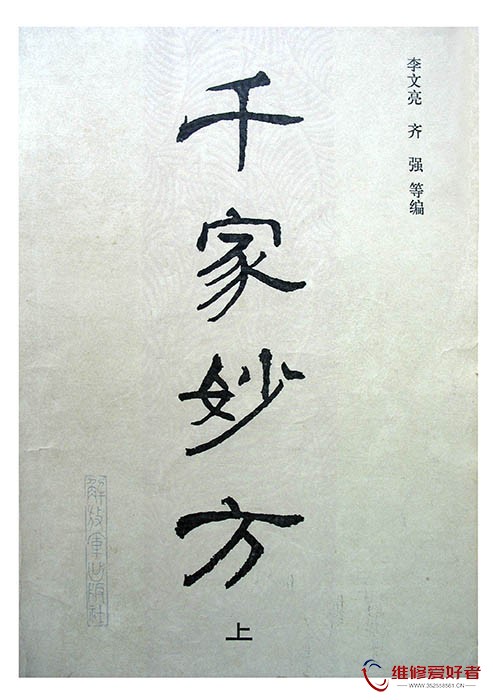 李文亮 齐强 等编
千家妙方
上
解放军出版社
维修爱好者
www.352558561.cn